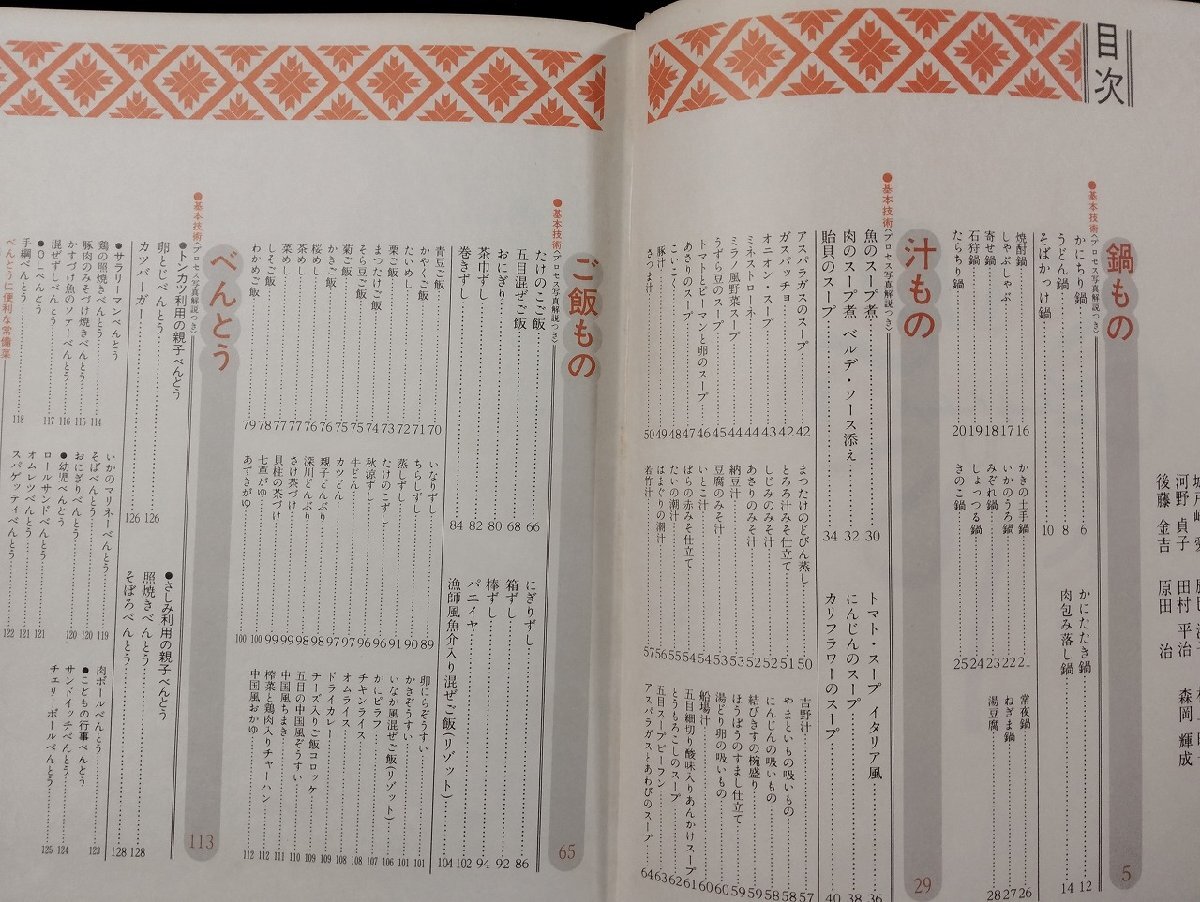 目次
河野 貞子
後藤 金吉
田村 平治
原田 治
森岡 輝成
鍋もの 5
●基本技術〈プロセス写真解説つき〉
かにちり鍋 6
うどん鍋 8
そばかっけ鍋 10
かにたたき鍋 12
肉包み落し鍋 14
焼酎鍋 16
しゃぶしゃぶ 17
寄せ鍋 18
石狩鍋 19
たらちり鍋 20
かきの土手鍋
いかのうろ鍋 22
みぞれ鍋 23
しょっつる鍋 24
きのこ鍋 25
常夜鍋 26
ねぎま鍋 27
湯豆腐 28
汁もの 29
●基本技術〈プロセス写真解説つき〉
魚のスープ煮 30
肉のスープ煮 ベルデ・ソース添え 32
貽貝のスープ 34
トマト・スープ イタリア風 36
にんじんのスープ 38
カリフラワーのスープ 40
アスパラガスのスープ 42
ガスパッチョ 42
オニオン・スープ 43
ミネストローネ 44
ミラノ風野菜スープ 44
うずら豆のスープ 45
トマトとピーマンと卵のスープ 46
あさりのスープ 47
こいこく 48
豚汁 49
さつま汁 50
まつたけのどびん蒸し 50
とろろ汁みそ仕立て 51
しじみのみそ汁 52
あさりのみそ汁 52
納豆汁 53
豆腐のみそ汁 53
いとこ汁 54
ばらの赤みそ仕立て 54
たいの潮汁 55
はまぐりの潮汁 56
若竹汁 57
吉野汁 57
やまといもの吸いもの 58
にんじんの吸いもの 58
結びきすの椀盛り 59
ほうぼうのすまし仕立て 59
湯どり卵の吸いもの 60
船場汁 60
五目細切り酸味入りあんかけスープ 61
とうもろこしのスープ 62
五目スープビーフン 63
アスパラガスとあわびのスープ 64
ご飯もの 65
●基本技術〈プロセス写真解説つき〉
たけのこご飯 66
五目混ぜご飯 68
おにぎり 80
茶巾ずし 82
巻きずし 84
にぎりずし 86
箱ずし 92
棒ずし 94
パエリヤ 102
漁師風魚介入り混ぜご飯(リゾット) 104
青豆ご飯 70
かやくご飯 71
たいめし 72
栗ご飯 73
まつたけご飯 74
そら豆ご飯 75
菊ご飯 75
かきご飯 76
桜めし 76
茶めし 77
菜めし 77
しそご飯 78
わかめご飯 79
いなりずし 89
ちらしずし 90
蒸しずし 91
たけのこずし 96
牛どん 97
カツどん 97
親子どんぶり 98
深川どんぶり 98
さけ茶づけ 99
貝柱の茶づけ 99
七草がゆ 100
あずきがゆ 100
卵にらぞうすい 101
かきぞうすい 101
いなか風混ぜご飯(リゾット) 106
かにピラフ 107
チキンライス 108
オムライス 108
ドライカレー 109
チーズ入りご飯コロッケ 109
五目の中国風ぞうすい 110
中国風ちまき 111
搾菜と鶏肉入りチャーハン 112
中国風おかゆ 112
べんとう 113
●基本技術〈プロセス写真解説つき〉
●トンカツ利用の親子べんとう
卵とじべんとう 126
カツバーガー 126
●さしみ利用の親子べんとう
照焼きべんとう 128
そぼろべんとう 128
●サラリーマンべんとう
鶏の照焼きべんとう 114
豚肉のみそづけ焼きべんとう 115
かすづけ魚のソテーべんとう 116
混ぜずしべんとう 117
●OLべんとう
手綱べんとう 118
べんとうに便利な常備菜
いかのマリネーべんとう 119
そばべんとう 120
おにぎりべんとう 120
●幼児べんとう
ロールサンドべんとう 121
オムレツべんとう 121
スパゲッティべんとう 122
肉ボールべんとう 123
●こどもの行事べんとう
サンドイッチべんとう 124
チェリーボールべんとう 125